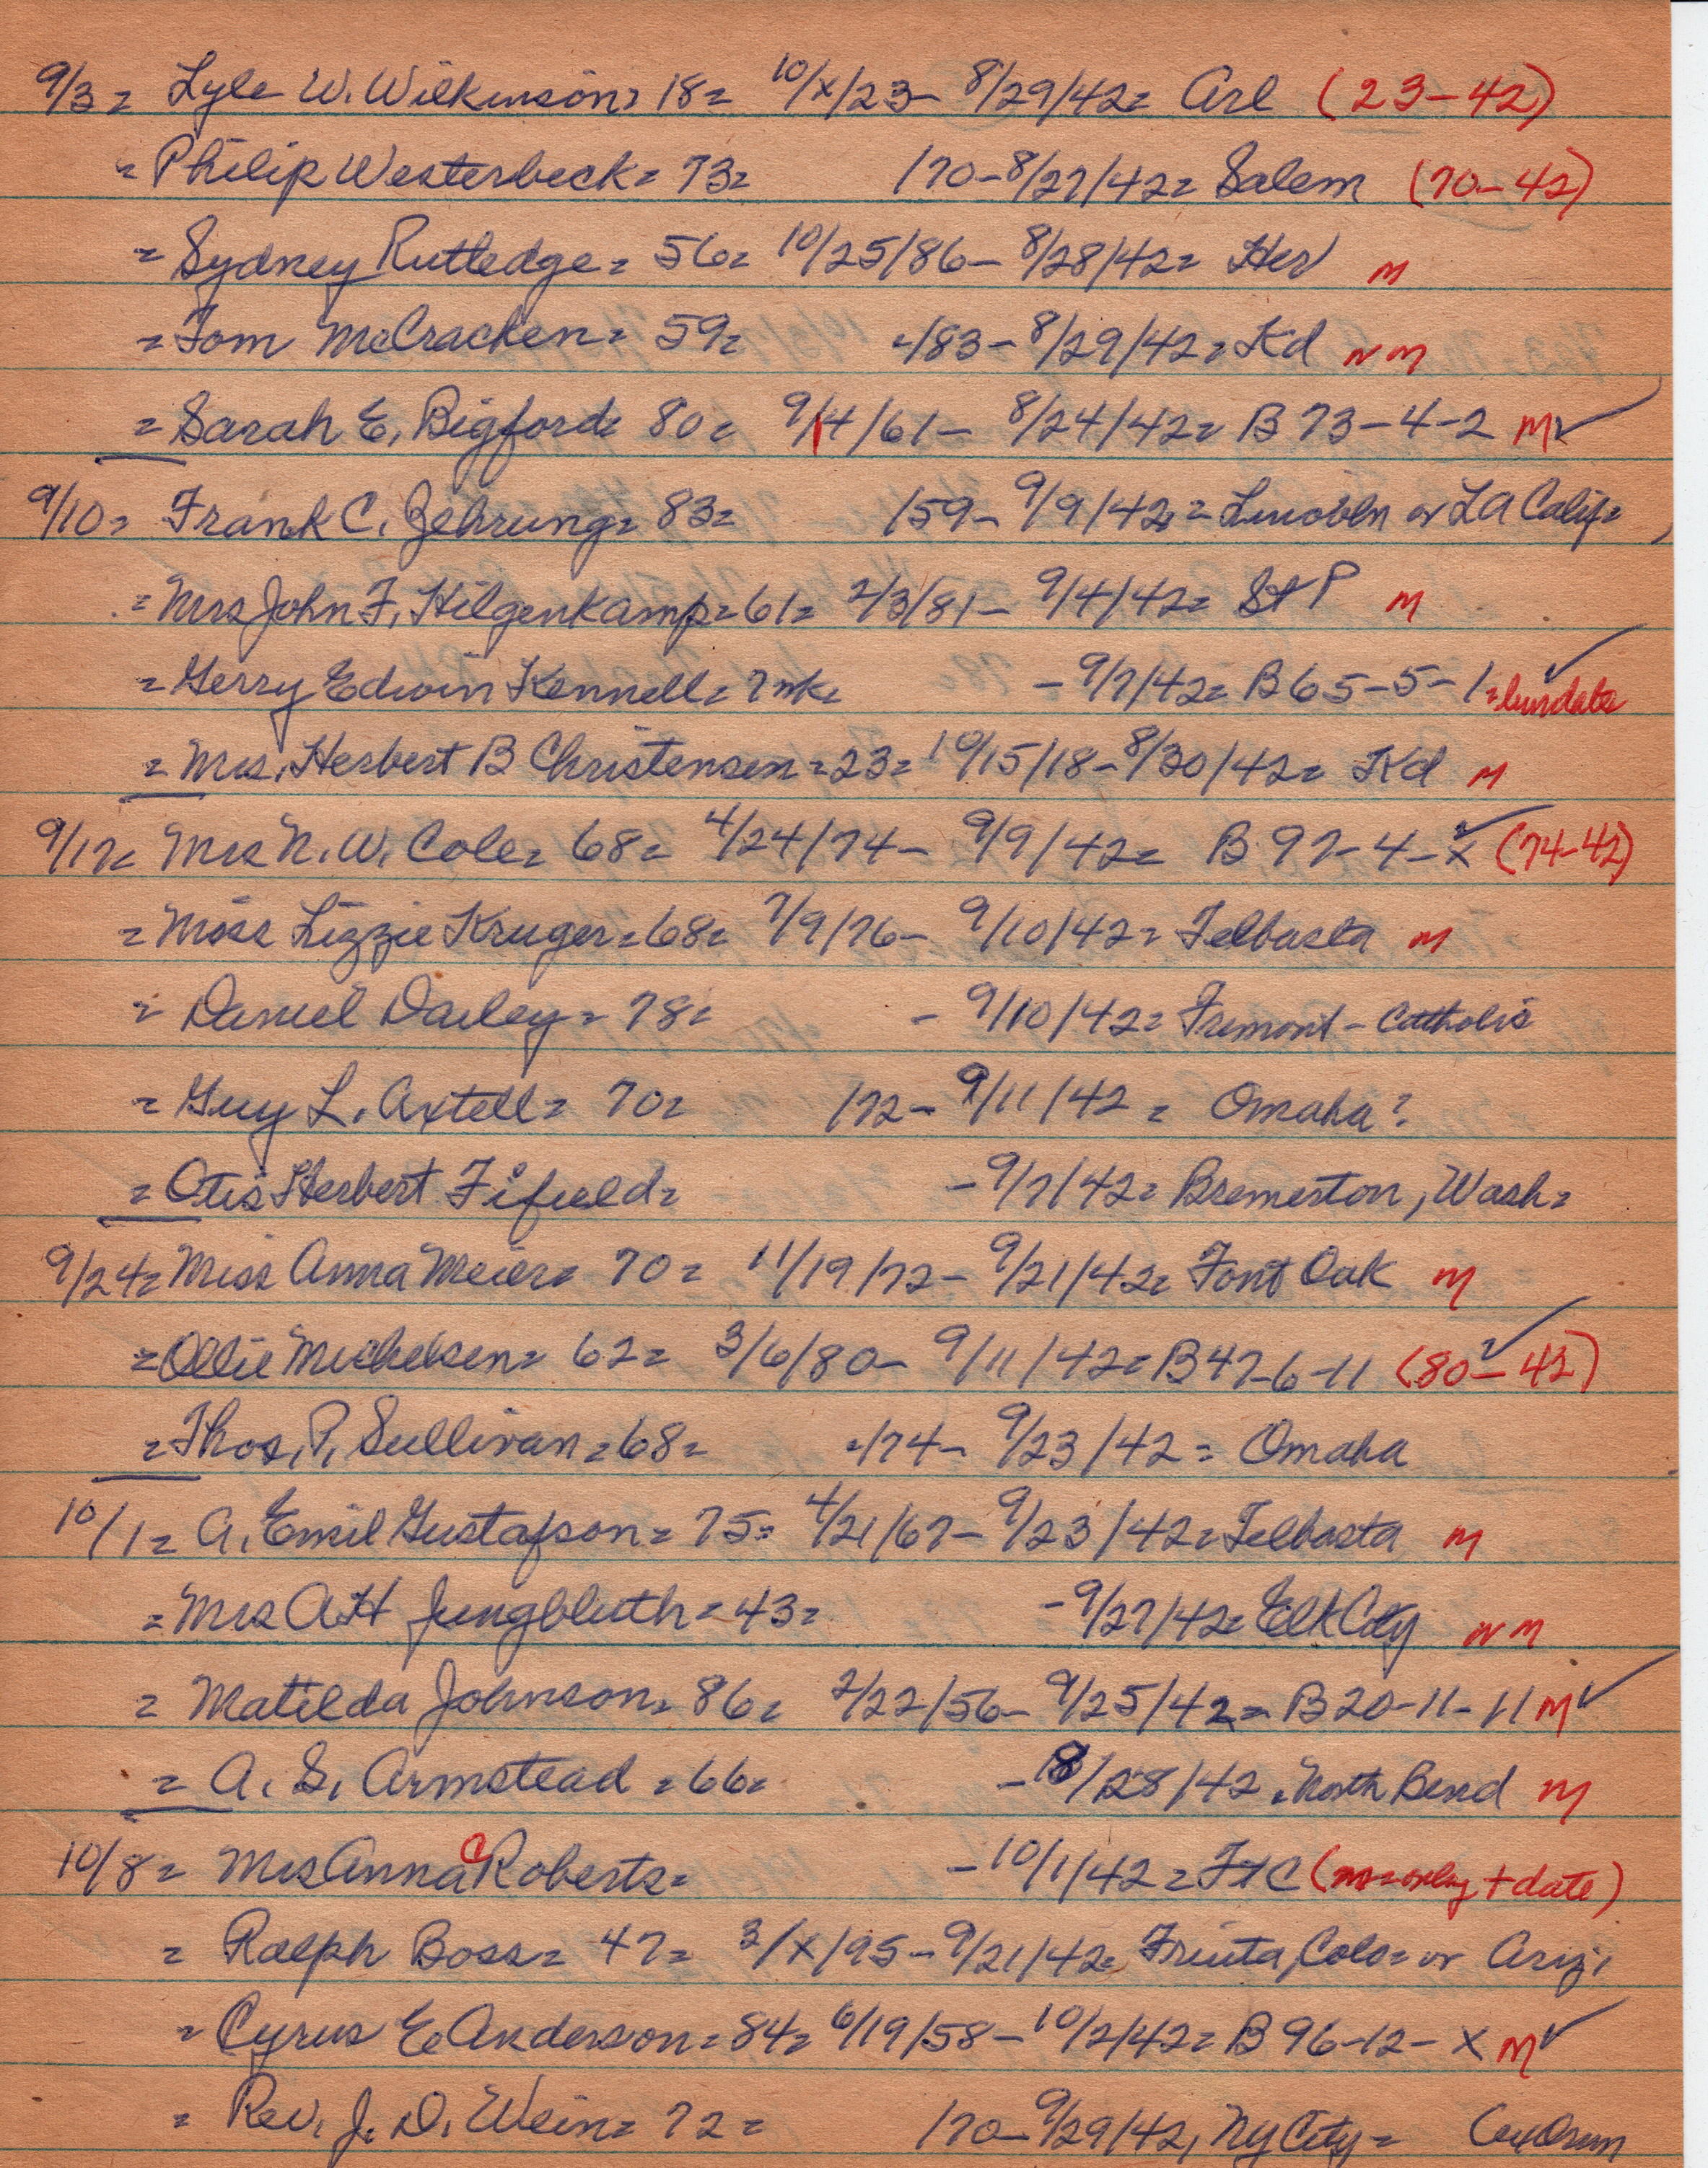 9/3= Lyle W. Wilkinson= 18= 10/x/23- 8/29/42= Arl (23-42)
= Philip Westerbeck= 73= /70-8/27/42= Salem (70-42)
= Sydney Rutledge= 56= 10/25/86- 8/28/42= Her M
= Tom McCracken= 59= -/83- 8/29/42= Kd NM
= Sarah E. Bigford= 80= 9/14/61- 8/24/42= B 73-4-2 M✓
9/10= Frank C. Gehrung= 83= /59- 9/9/42= or LA Calif=
= Mrs John F. Hilgenkamp=61= 2/3/81- 9/4/42= St P M
= Gerry Edwin Kennell= 7 - 9/7/42= B 65-5-1 ✓
= Mrs. Herbert B Christensen=23= 10/15/18-8/30/42= Kd M
9/17= Mrs N. W. Cole= 68= 4/24/74- 9/9/42= B 97-4-x ✓ (74-42)
= Miss Lizzie Kruger=68= 7/9/76- 9/10/42= Telbasta M
= Daniel Dailey= 78= - 9/10/42= Fremont- Catholic
= Guy L. Axtell= 70= /72- 9/11/42 = Omaha?
= Otis Herbert Fifield= -9/7/42= Bremerton, Wash=
9/24= Miss Anna Meier= 70= 11/19/72- 9/21/42= Font Oak M
=Ollie Michelsen= 62= 3/6/80- 9/11/42= B47-6-11 ✓ (80-42)
=Thos. P. Sullivan=68= -/74- 9/23/42= Omaha
10/1= A. Emil Gustafson= 75= 4/21/67- 9/23/42= Telbasta M
=Mrs AH Jungbluth= 43= -9/27/42= Elk City NM
= Matilda Johnson= 86= 2/22/56- 9/25/42= B 20-11-11 M✓
= A. S. Armstead =66= - /28/42 = North Bend M
10/8= Mrs Anna C Roberts= -10/1/42= Ft C ( only + date)
= Ralph Boss= 47= 3/x/95-9/21/42= Fruita, Colo= or Ariz.
= Cyrus E Anderson=84= 6/19/58-10/2/42= B 96-12-x M✓
= Rev. J. D. Wein= 72= /70-9/29/42, NyCity=